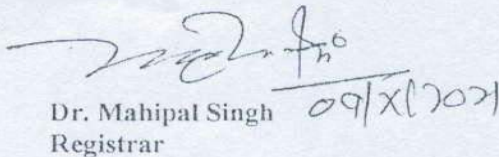 09/X/2021
Dr. Mahipal Singh
Registrar